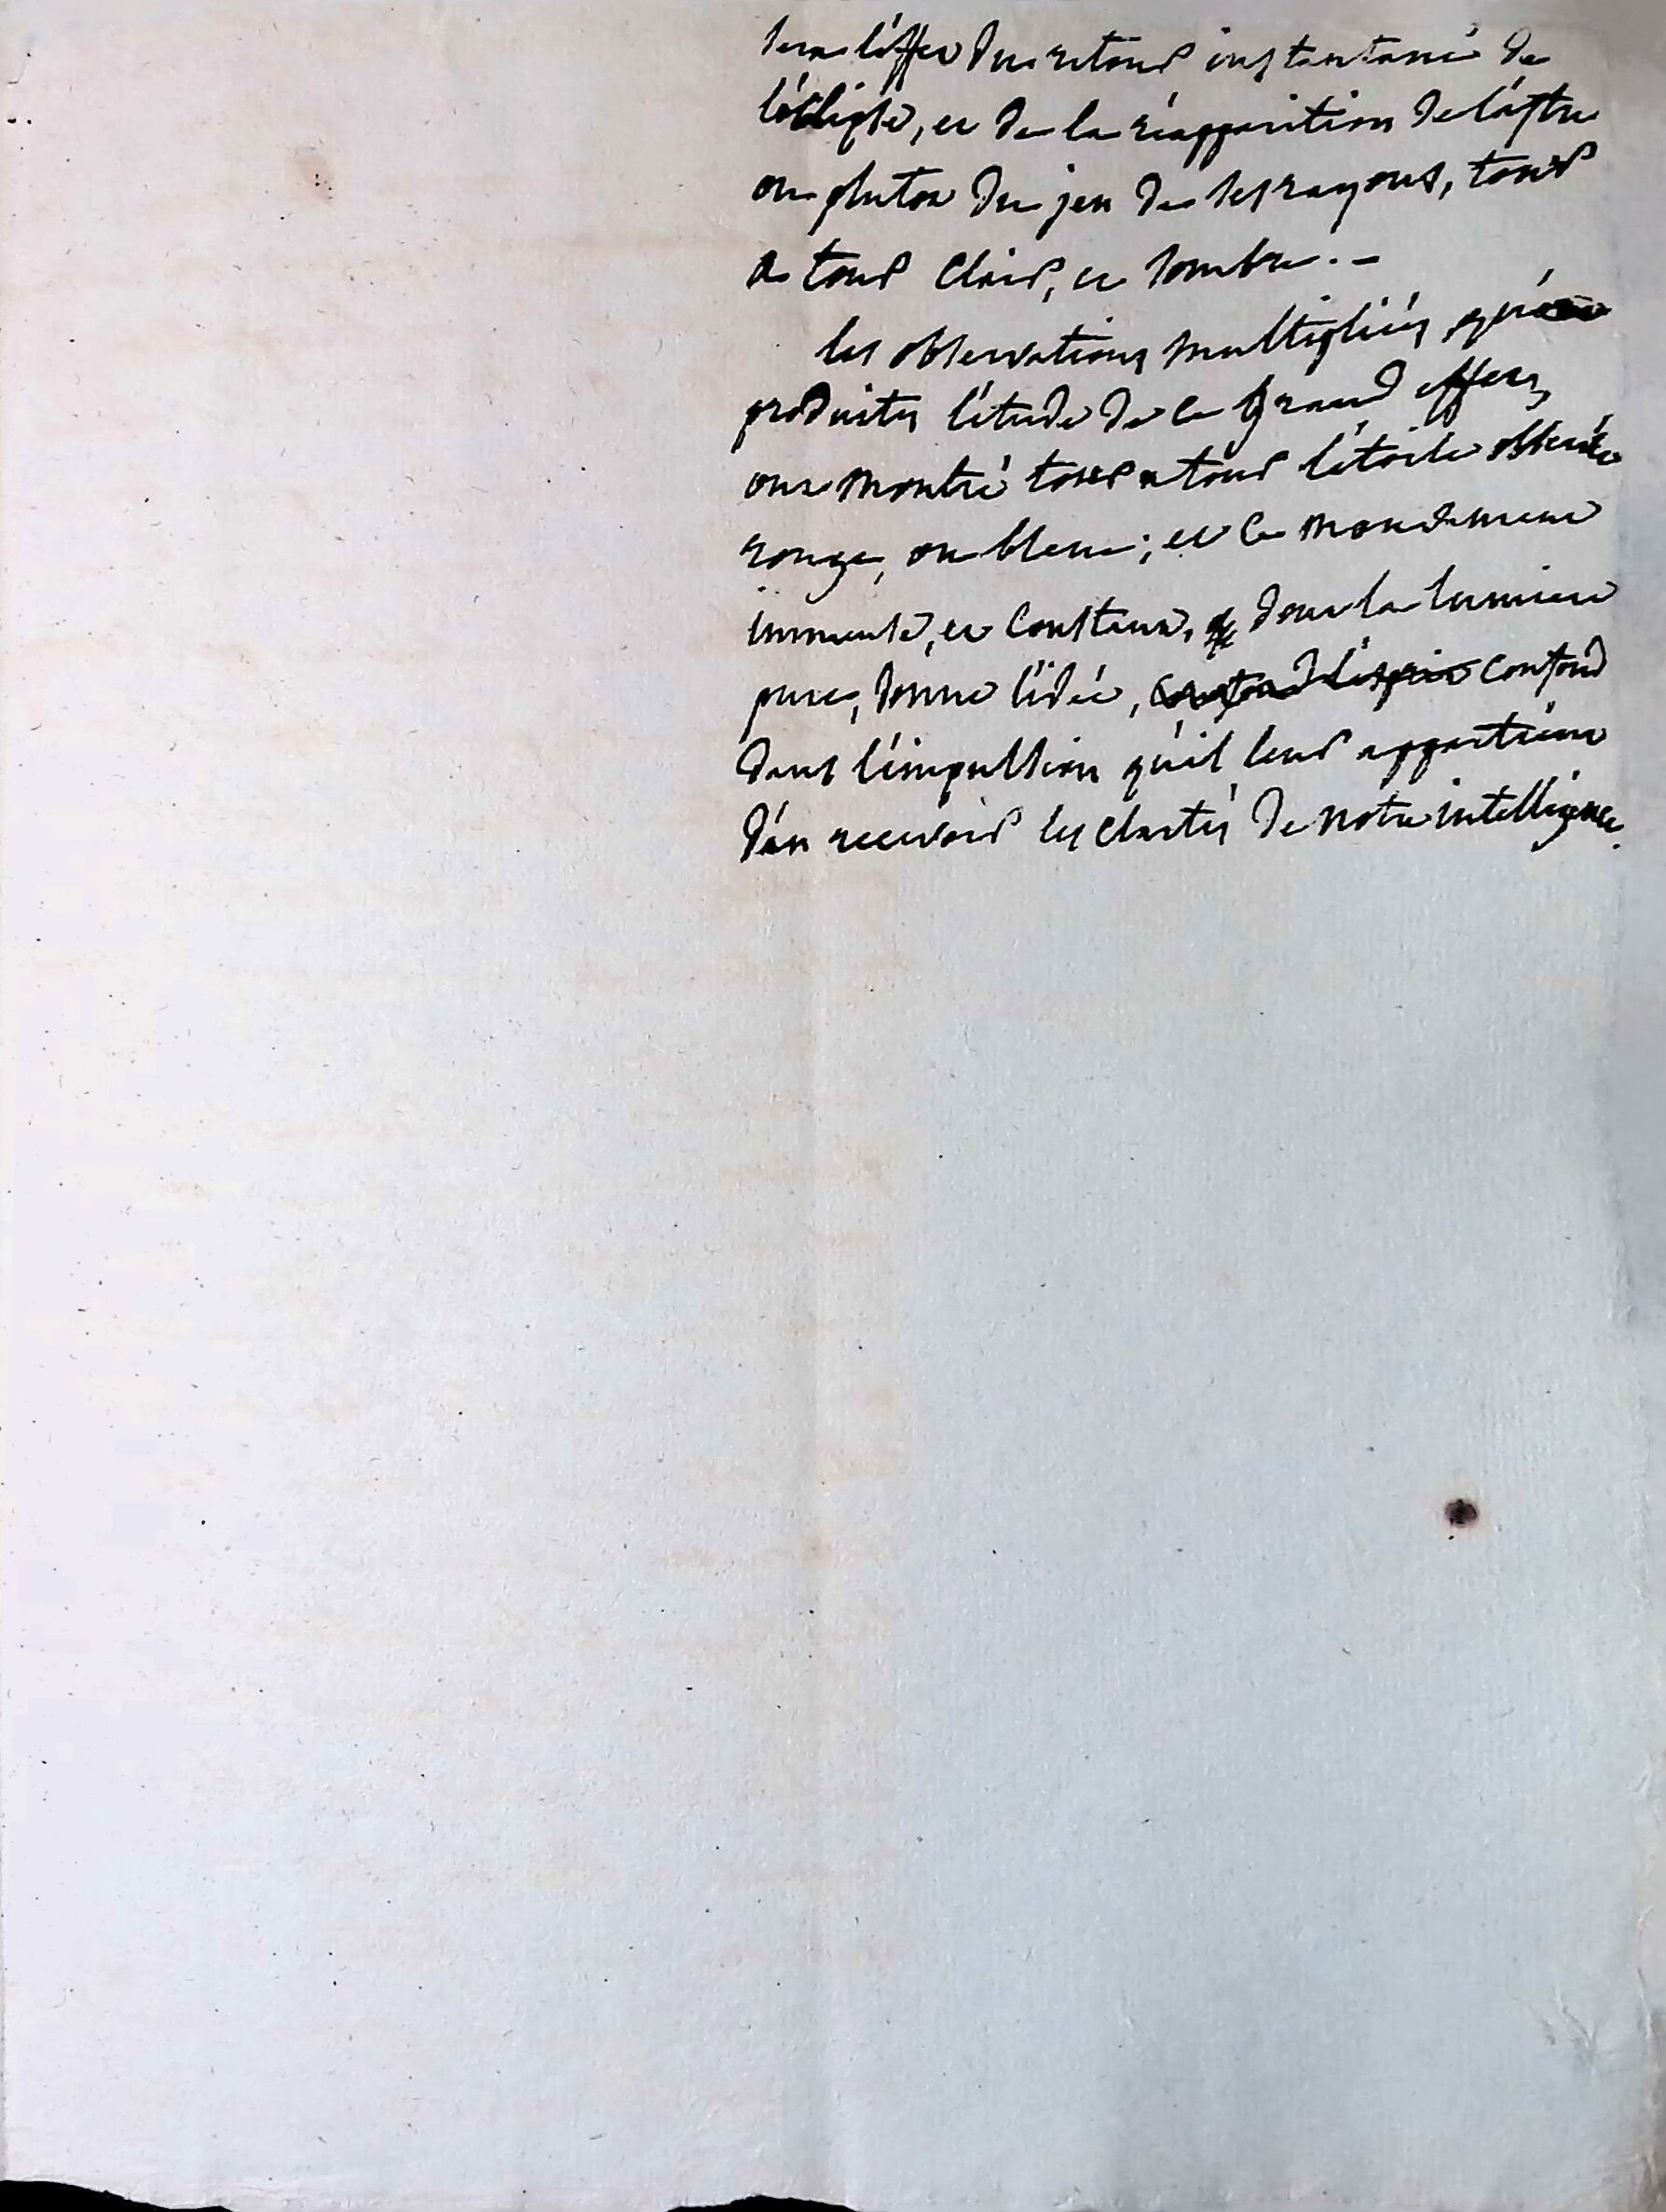 sera l'éffet du retour instantané de
l'éclipse, et de la réapparition de l'astre
ou plutot du jeu de ses rayons, tour
a tour clair, et sombre. -
les observations multipliées qu'a
produites l'étude de ce grand effet,
ont montré tour a tour l'étoile observée
rouge, ou bleue; et ce
immense, et constant, dont la lumiere
pure, donne l'idée, confond l'esprit confond
dans l'impulsion qu'il leur appartient
d'en recevoir les clartés de notre intelligence.